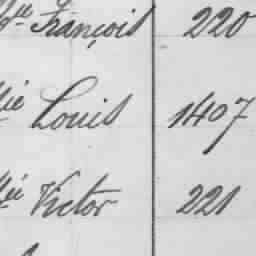 François 220
Louis 1407
Victor 221